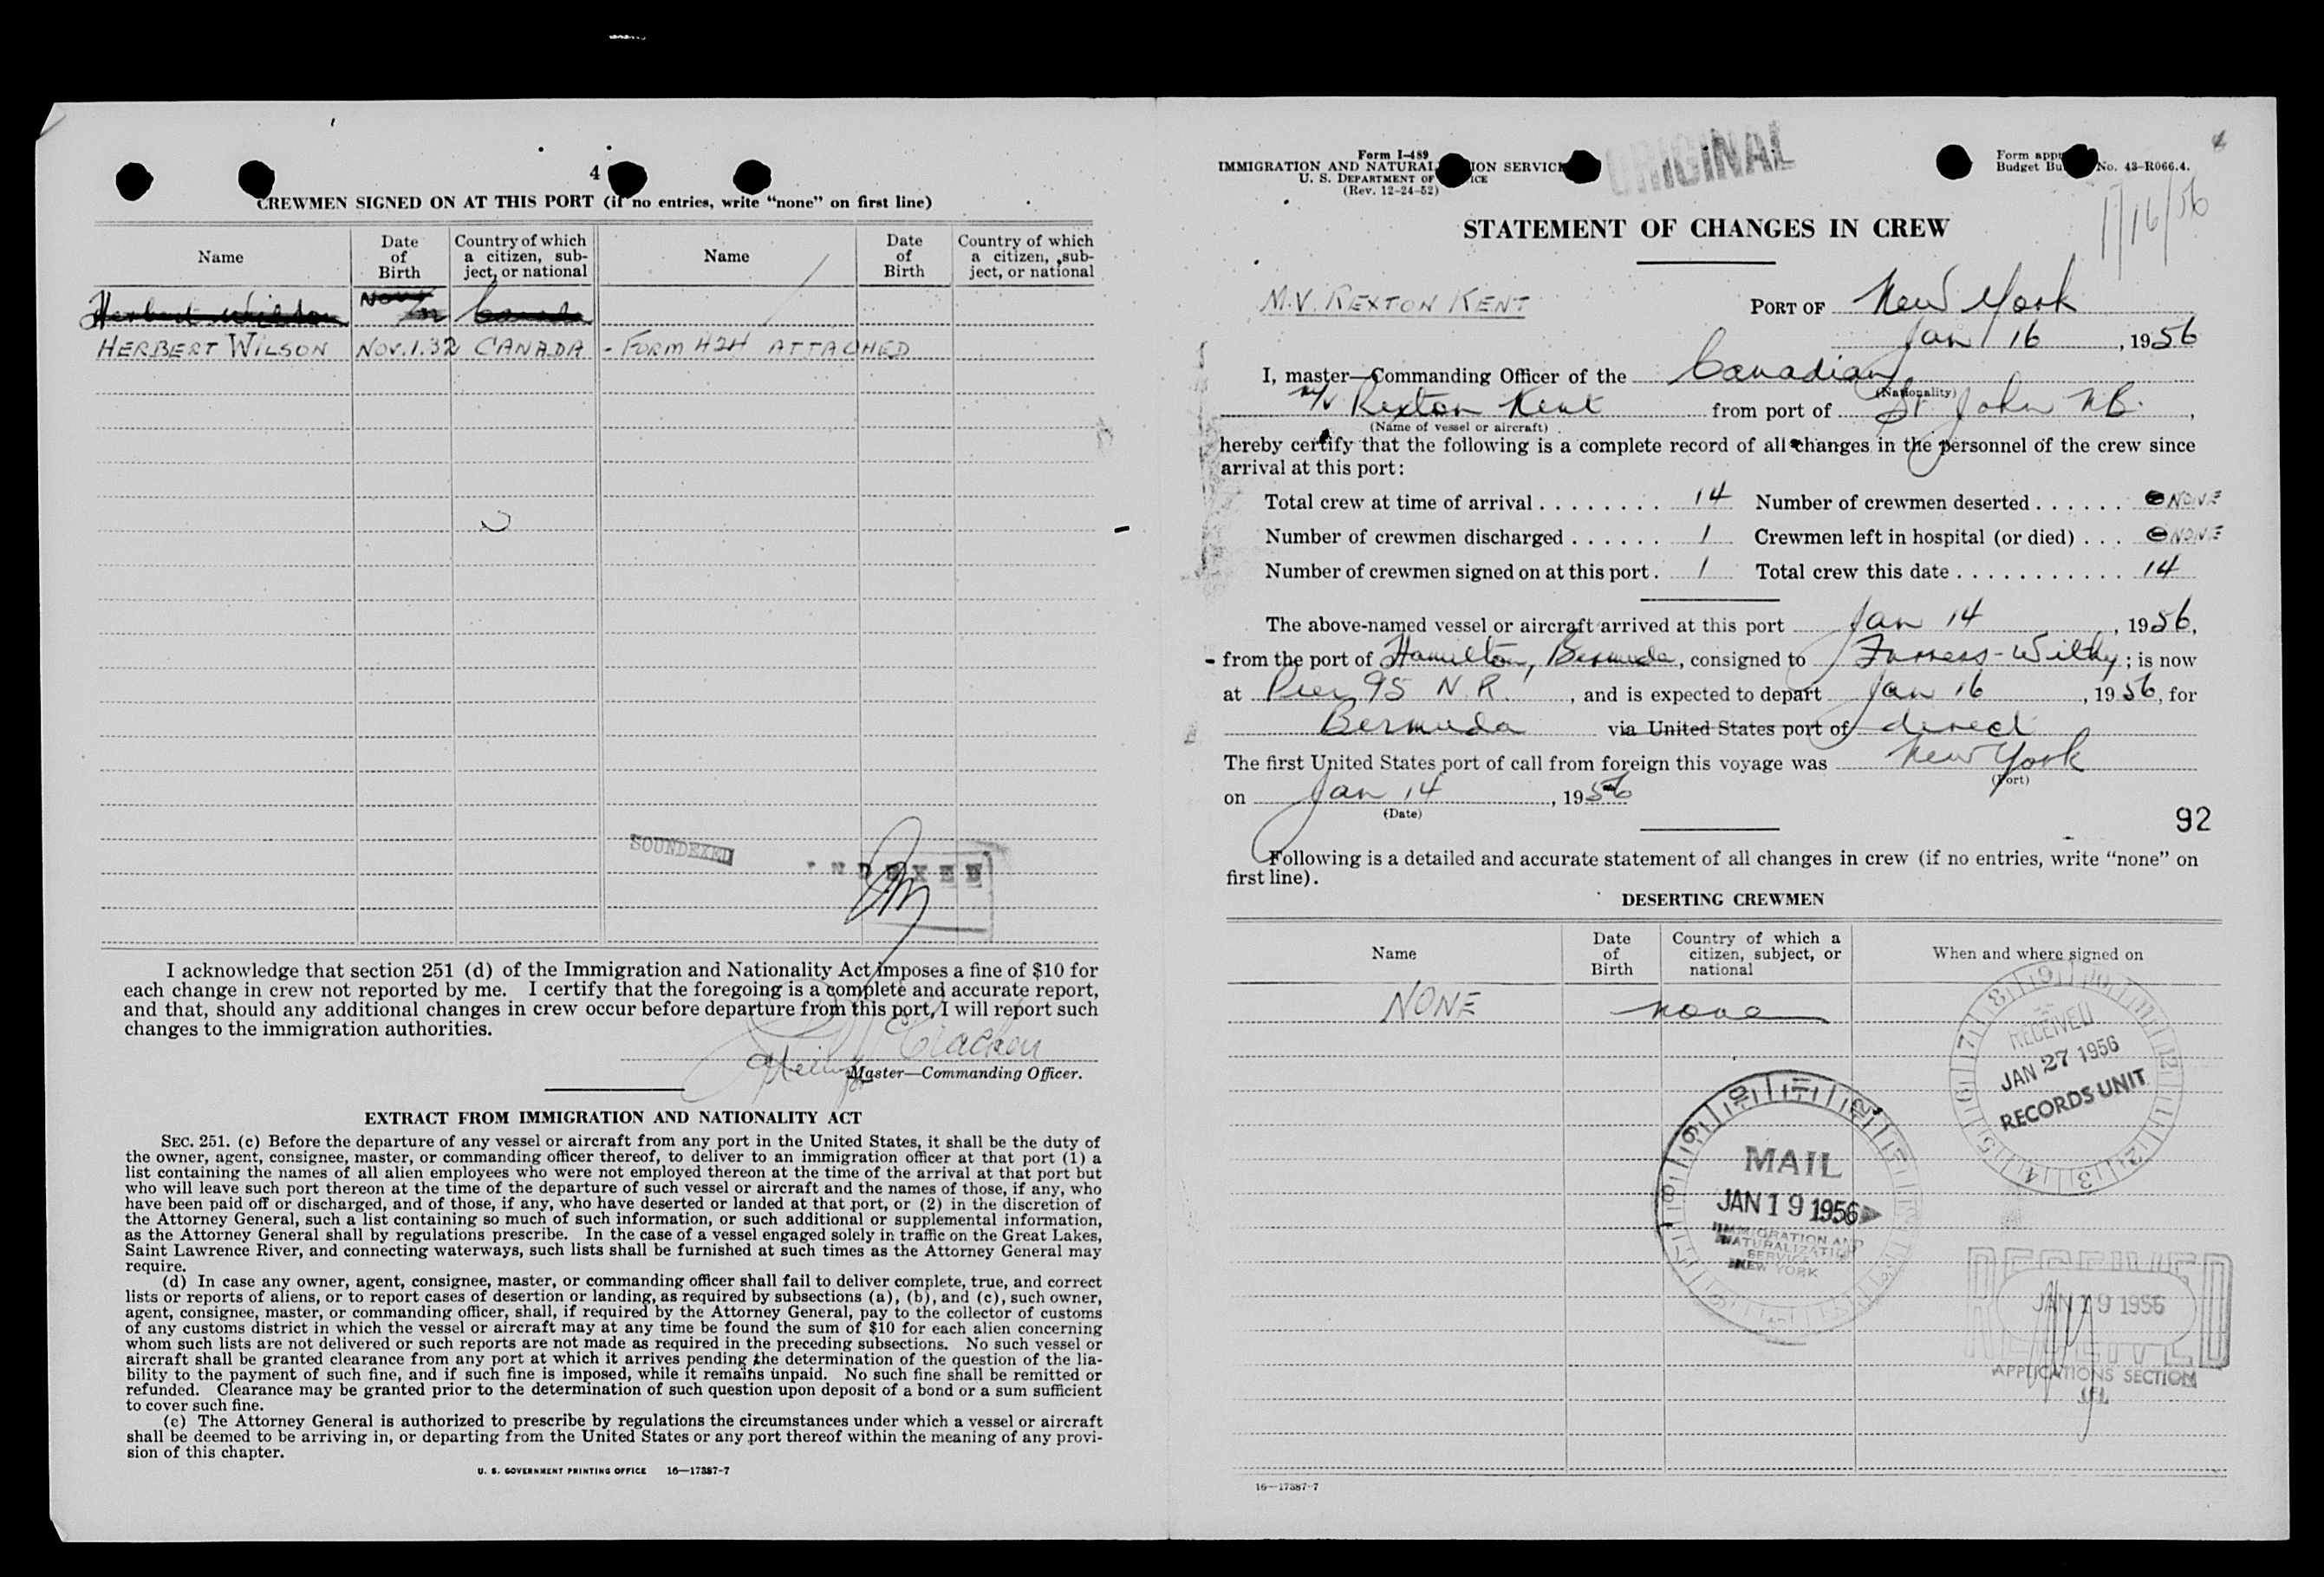 4
CREWMEN SIGNED ON AT THIS PORT (if no entries, write "none" on first line)
Name
Date of Birth
Country of which a citizen, subject, or national
Name
Date of Birth
Country of which a citizen, subject, or national
Herbert Wilson
HERBERT WILSON NOV. 1. 32 CANADA - FORM 424 ATTACHED
SOUNDEXED
INDEXED
I acknowledge that section 251 (d) of the Immigration and Nationality Act imposes a fine of $10 for
each change in crew not reported by me. I certify that the foregoing is a complete and accurate report,
and that, should any additional changes in crew occur before departure from this port, I will report such
changes to the immigration authorities.
Master—Commanding Officer.
EXTRACT FROM IMMIGRATION AND NATIONALITY ACT
SEC. 251. (c) Before the departure of any vessel or aircraft from any port in the United States, it shall be the duty of
the owner, agent, consignee, master, or commanding officer thereof, to deliver to an immigration officer at that port (1) a
list containing the names of all alien employees who were not employed thereon at the time of the arrival at that port but
who will leave such port thereon at the time of the departure of such vessel or aircraft and the names of those, if any, who
have been paid off or discharged, and of those, if any, who have deserted or landed at that port, or (2) in the discretion of
the Attorney General, such a list containing so much of such information, or such additional or supplemental information,
as the Attorney General shall by regulations prescribe. In the case of a vessel engaged solely in traffic on the Great Lakes,
Saint Lawrence River, and connecting waterways, such lists shall be furnished at such times as the Attorney General may
require.
(d) In case any owner, agent, consignee, master, or commanding officer shall fail to deliver complete, true, and correct
lists or reports of aliens, or to report cases of desertion or landing, as required by subsections (a), (b), and (c), such owner,
agent, consignee, master, or commanding officer, shall, if required by the Attorney General, pay to the collector of customs
of any customs district in which the vessel or aircraft may at any time be found the sum of $10 for each alien concerning
whom such lists are not delivered or such reports are not made as required in the preceding subsections. No such vessel or
aircraft shall be granted clearance from any port at which it arrives pending the determination of the question of the lia-
bility to the payment of such fine, and if such fine is imposed, while it remains unpaid. No such fine shall be remitted or
refunded. Clearance may be granted prior to the determination of such question upon deposit of a bond or a sum sufficient
to cover such fine.
(e) The Attorney General is authorized to prescribe by regulations the circumstances under which a vessel or aircraft
shall be deemed to be arriving in, or departing from the United States or any port thereof within the meaning of any provi-
sion of this chapter.
U. S. GOVERNMENT PRINTING OFFICE 16—17387-7
Form I-489
IMMIGRATION AND SERVICE
U. S. DEPARTMENT OF
(Rev. 12-24-52)
ORIGINAL
Form
Budget No. 43-R066.4.
1/16/56
STATEMENT OF CHANGES IN CREW
M.V. REXTON KENT
PORT OF New York
Jan 16, 1956
I, master—Commanding Officer of the Canadian
(Nationality)
M/V Rexton Kent from port of St John NB.,
(Name of vessel or aircraft)
hereby certify that the following is a complete record of all changes in the personnel of the crew since
arrival at this port:
Total crew at time of arrival . . . . . . . . 14 Number of crewmen deserted . . . . . . NONE
Number of crewmen discharged . . . . . . 1 Crewmen left in hospital (or died) . . . NONE
Number of crewmen signed on at this port . 1 Total crew this date . . . . . . . . . . . 14
The above-named vessel or aircraft arrived at this port Jan 14, 1956,
from the port of Hamilton, Bermuda, consigned to Furness-Withy; is now
at Pier 95 N.R., and is expected to depart Jan 16, 1956, for
Bermuda via United States port of direct
The first United States port of call from foreign this voyage was New York
(Port)
on Jan 14, 1956
(Date)
92
Following is a detailed and accurate statement of all changes in crew (if no entries, write "none" on
first line).
DESERTING CREWMEN
Name
Date of Birth
Country of which a citizen, subject, or national
When and where signed on
NONE none
RECEIVED
JAN 27 1956
RECORDS UNIT
MAIL
JAN 19 1956
IMMIGRATION AND
NATURALIZATION
SERVICE
NEW YORK
RECEIVED
JAN 19 1956
APPLICATIONS SECTION
16—17387-7